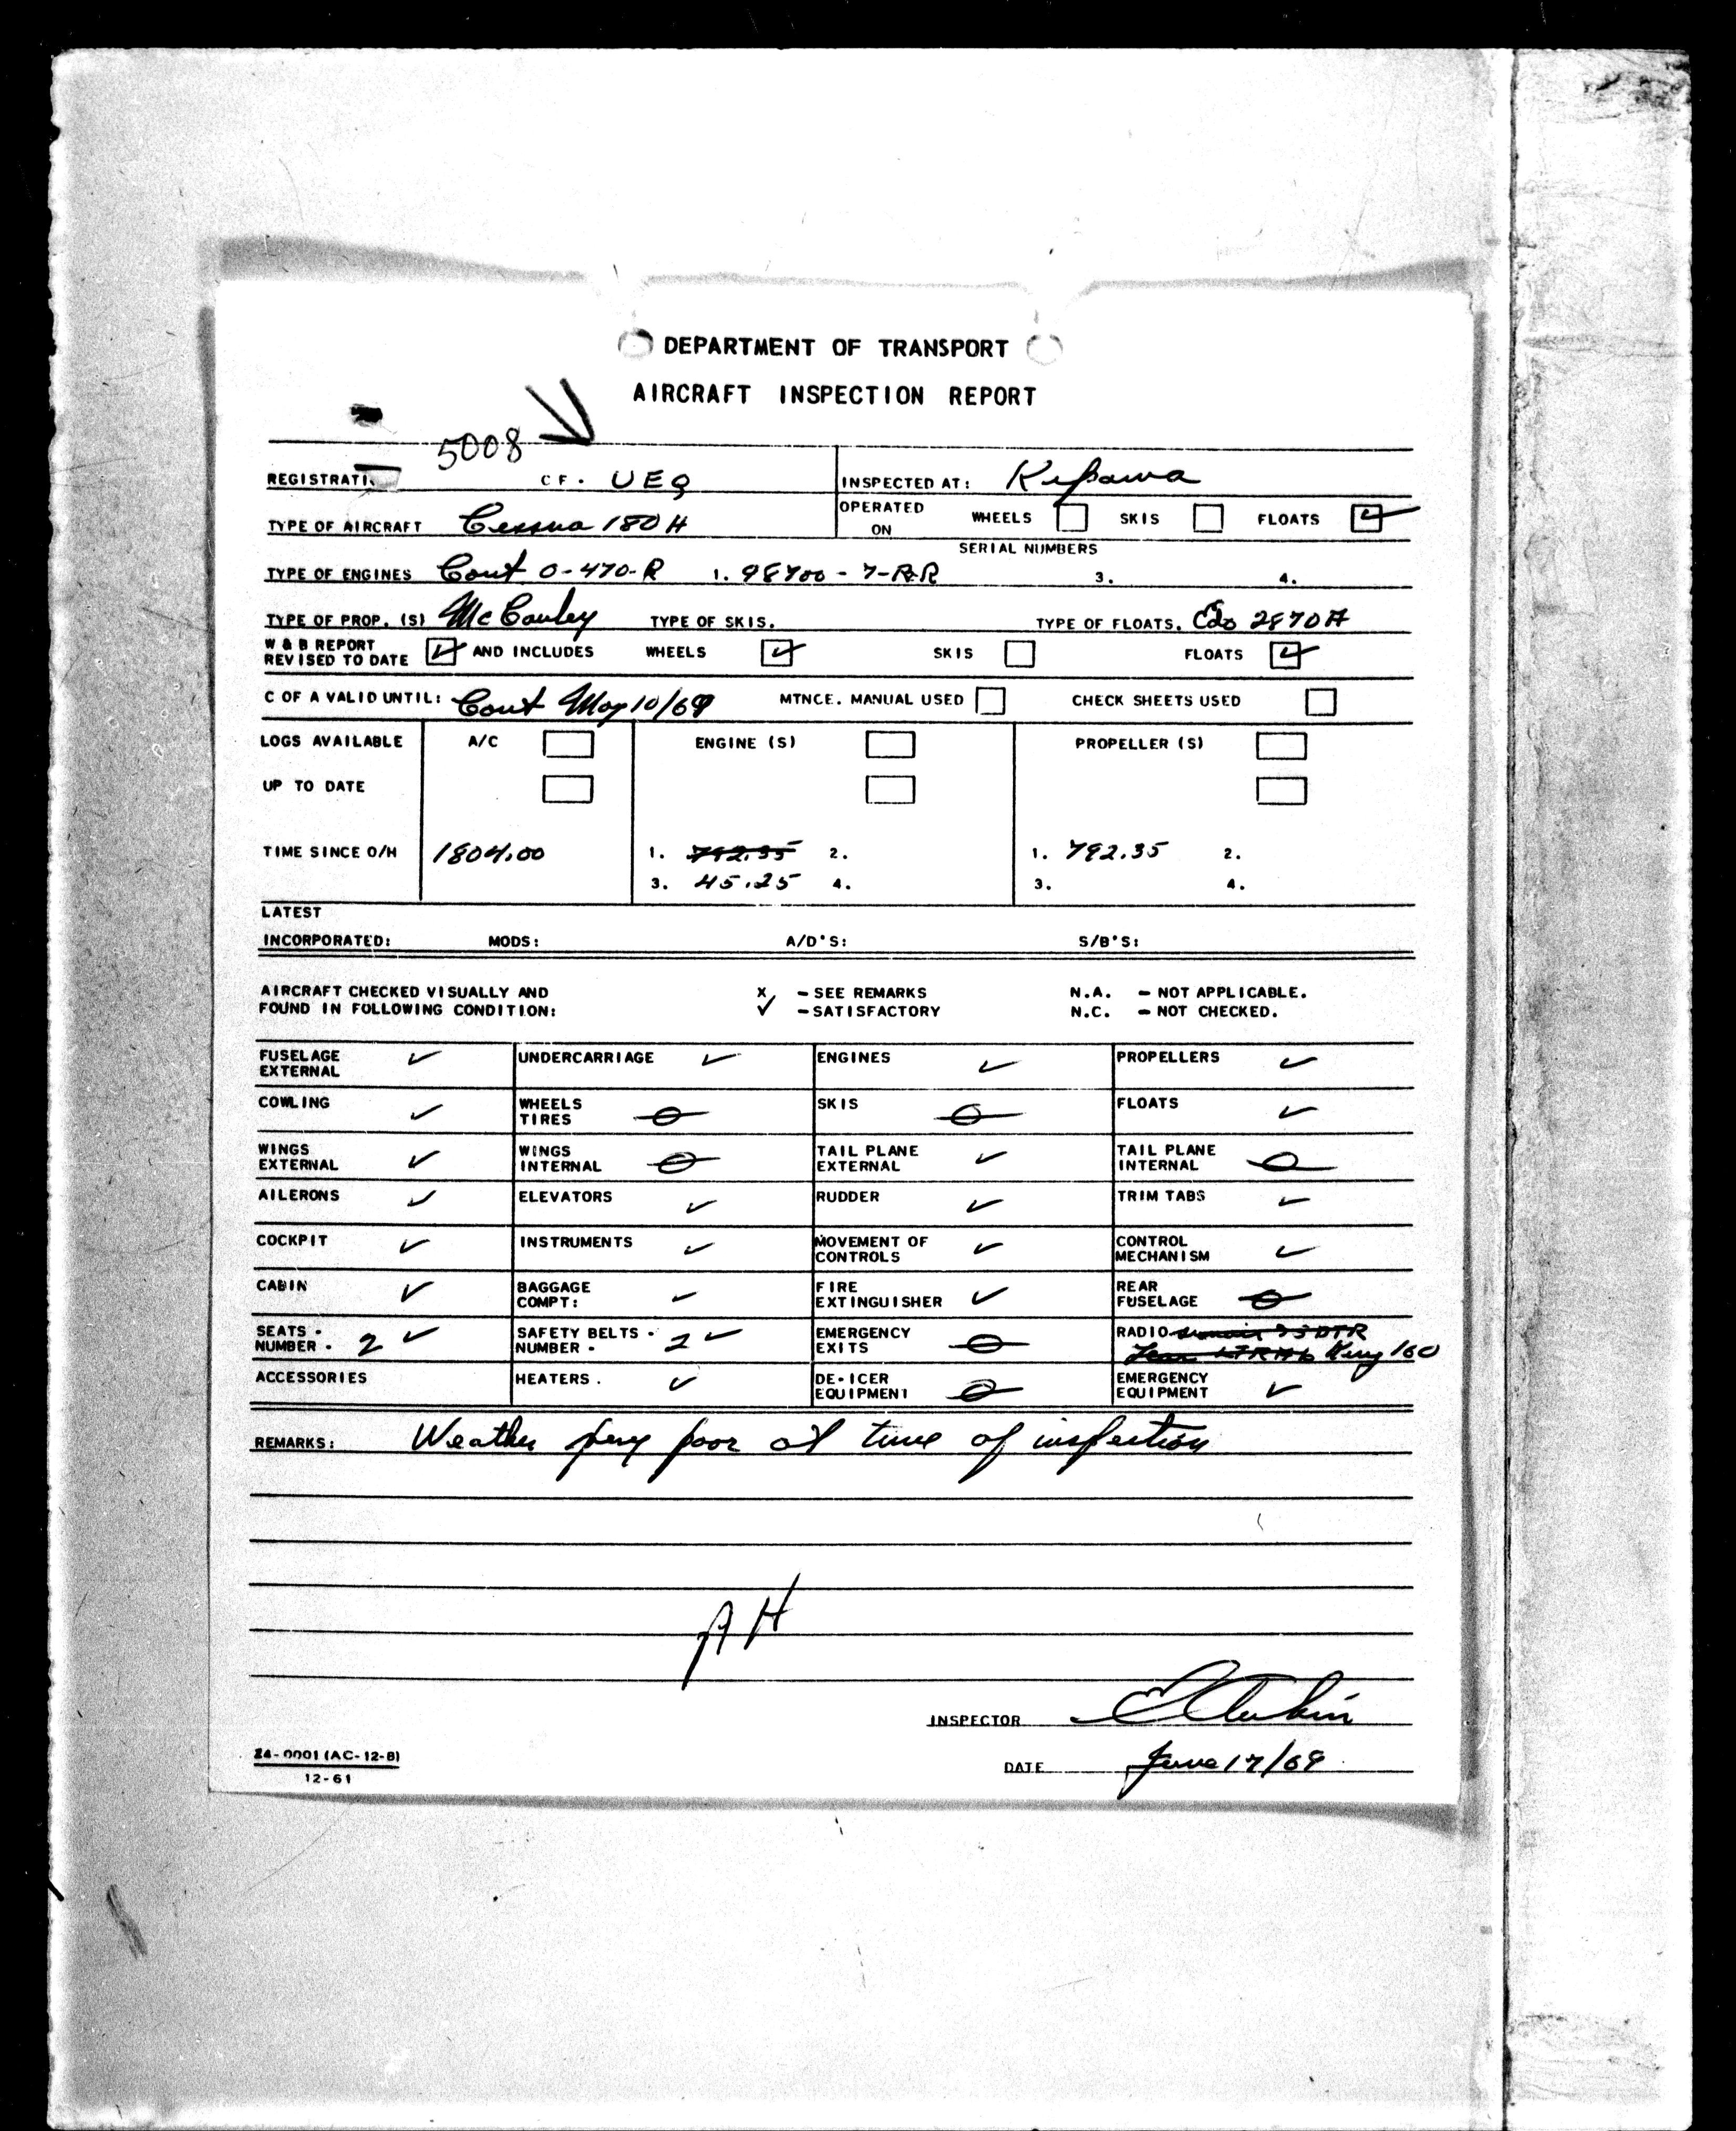 DEPARTMENT OF TRANSPORT
AIRCRAFT INSPECTION REPORT
5008
REGISTRATI CF. UEQ INSPECTED AT: Kipawa
TYPE OF AIRCRAFT Cessna 180H OPERATED ON WHEELS SKIS FLOATS ✓
SERIAL NUMBERS
TYPE OF ENGINES Cont O-470-R 1. 98700-7-R-R 3. 4.
TYPE OF PROP. (S) McCauley TYPE OF SKIS. TYPE OF FLOATS. Edo 2870A
W & B REPORT
REVISED TO DATE ✓ AND INCLUDES WHEELS ✓ SKIS FLOATS ✓
C OF A VALID UNTIL: Cont May 10/69 MTNCE. MANUAL USED CHECK SHEETS USED
LOGS AVAILABLE A/C ENGINE (S) PROPELLER (S)
UP TO DATE
TIME SINCE O/H 1804.00 1. 792.35 2. 1. 792.35 2.
3. 45.25 4. 3. 4.
LATEST
INCORPORATED: MODS: A/D'S: S/B'S:
AIRCRAFT CHECKED VISUALLY AND X - SEE REMARKS N.A. - NOT APPLICABLE.
FOUND IN FOLLOWING CONDITION: ✓ - SATISFACTORY N.C. - NOT CHECKED.
FUSELAGE EXTERNAL ✓ UNDERCARRIAGE ✓ ENGINES ✓ PROPELLERS ✓
COWLING ✓ WHEELS TIRES SKIS FLOATS ✓
WINGS EXTERNAL ✓ WINGS INTERNAL TAIL PLANE EXTERNAL ✓ TAIL PLANE INTERNAL
AILERONS ✓ ELEVATORS ✓ RUDDER ✓ TRIM TABS ✓
COCKPIT ✓ INSTRUMENTS ✓ MOVEMENT OF CONTROLS ✓ CONTROL MECHANISM ✓
CABIN ✓ BAGGAGE COMPT: ✓ FIRE EXTINGUISHER ✓ REAR FUSELAGE
SEATS - NUMBER - 2 ✓ SAFETY BELTS - NUMBER - 2 ✓ EMERGENCY EXITS RADIO King 160
ACCESSORIES HEATERS. ✓ DE-ICER EQUIPMENT EMERGENCY EQUIPMENT ✓
REMARKS: Weather very poor at time of inspection
AH
INSPECTOR
24-0001 (AC-12-B)
12-61
DATE June 17/69